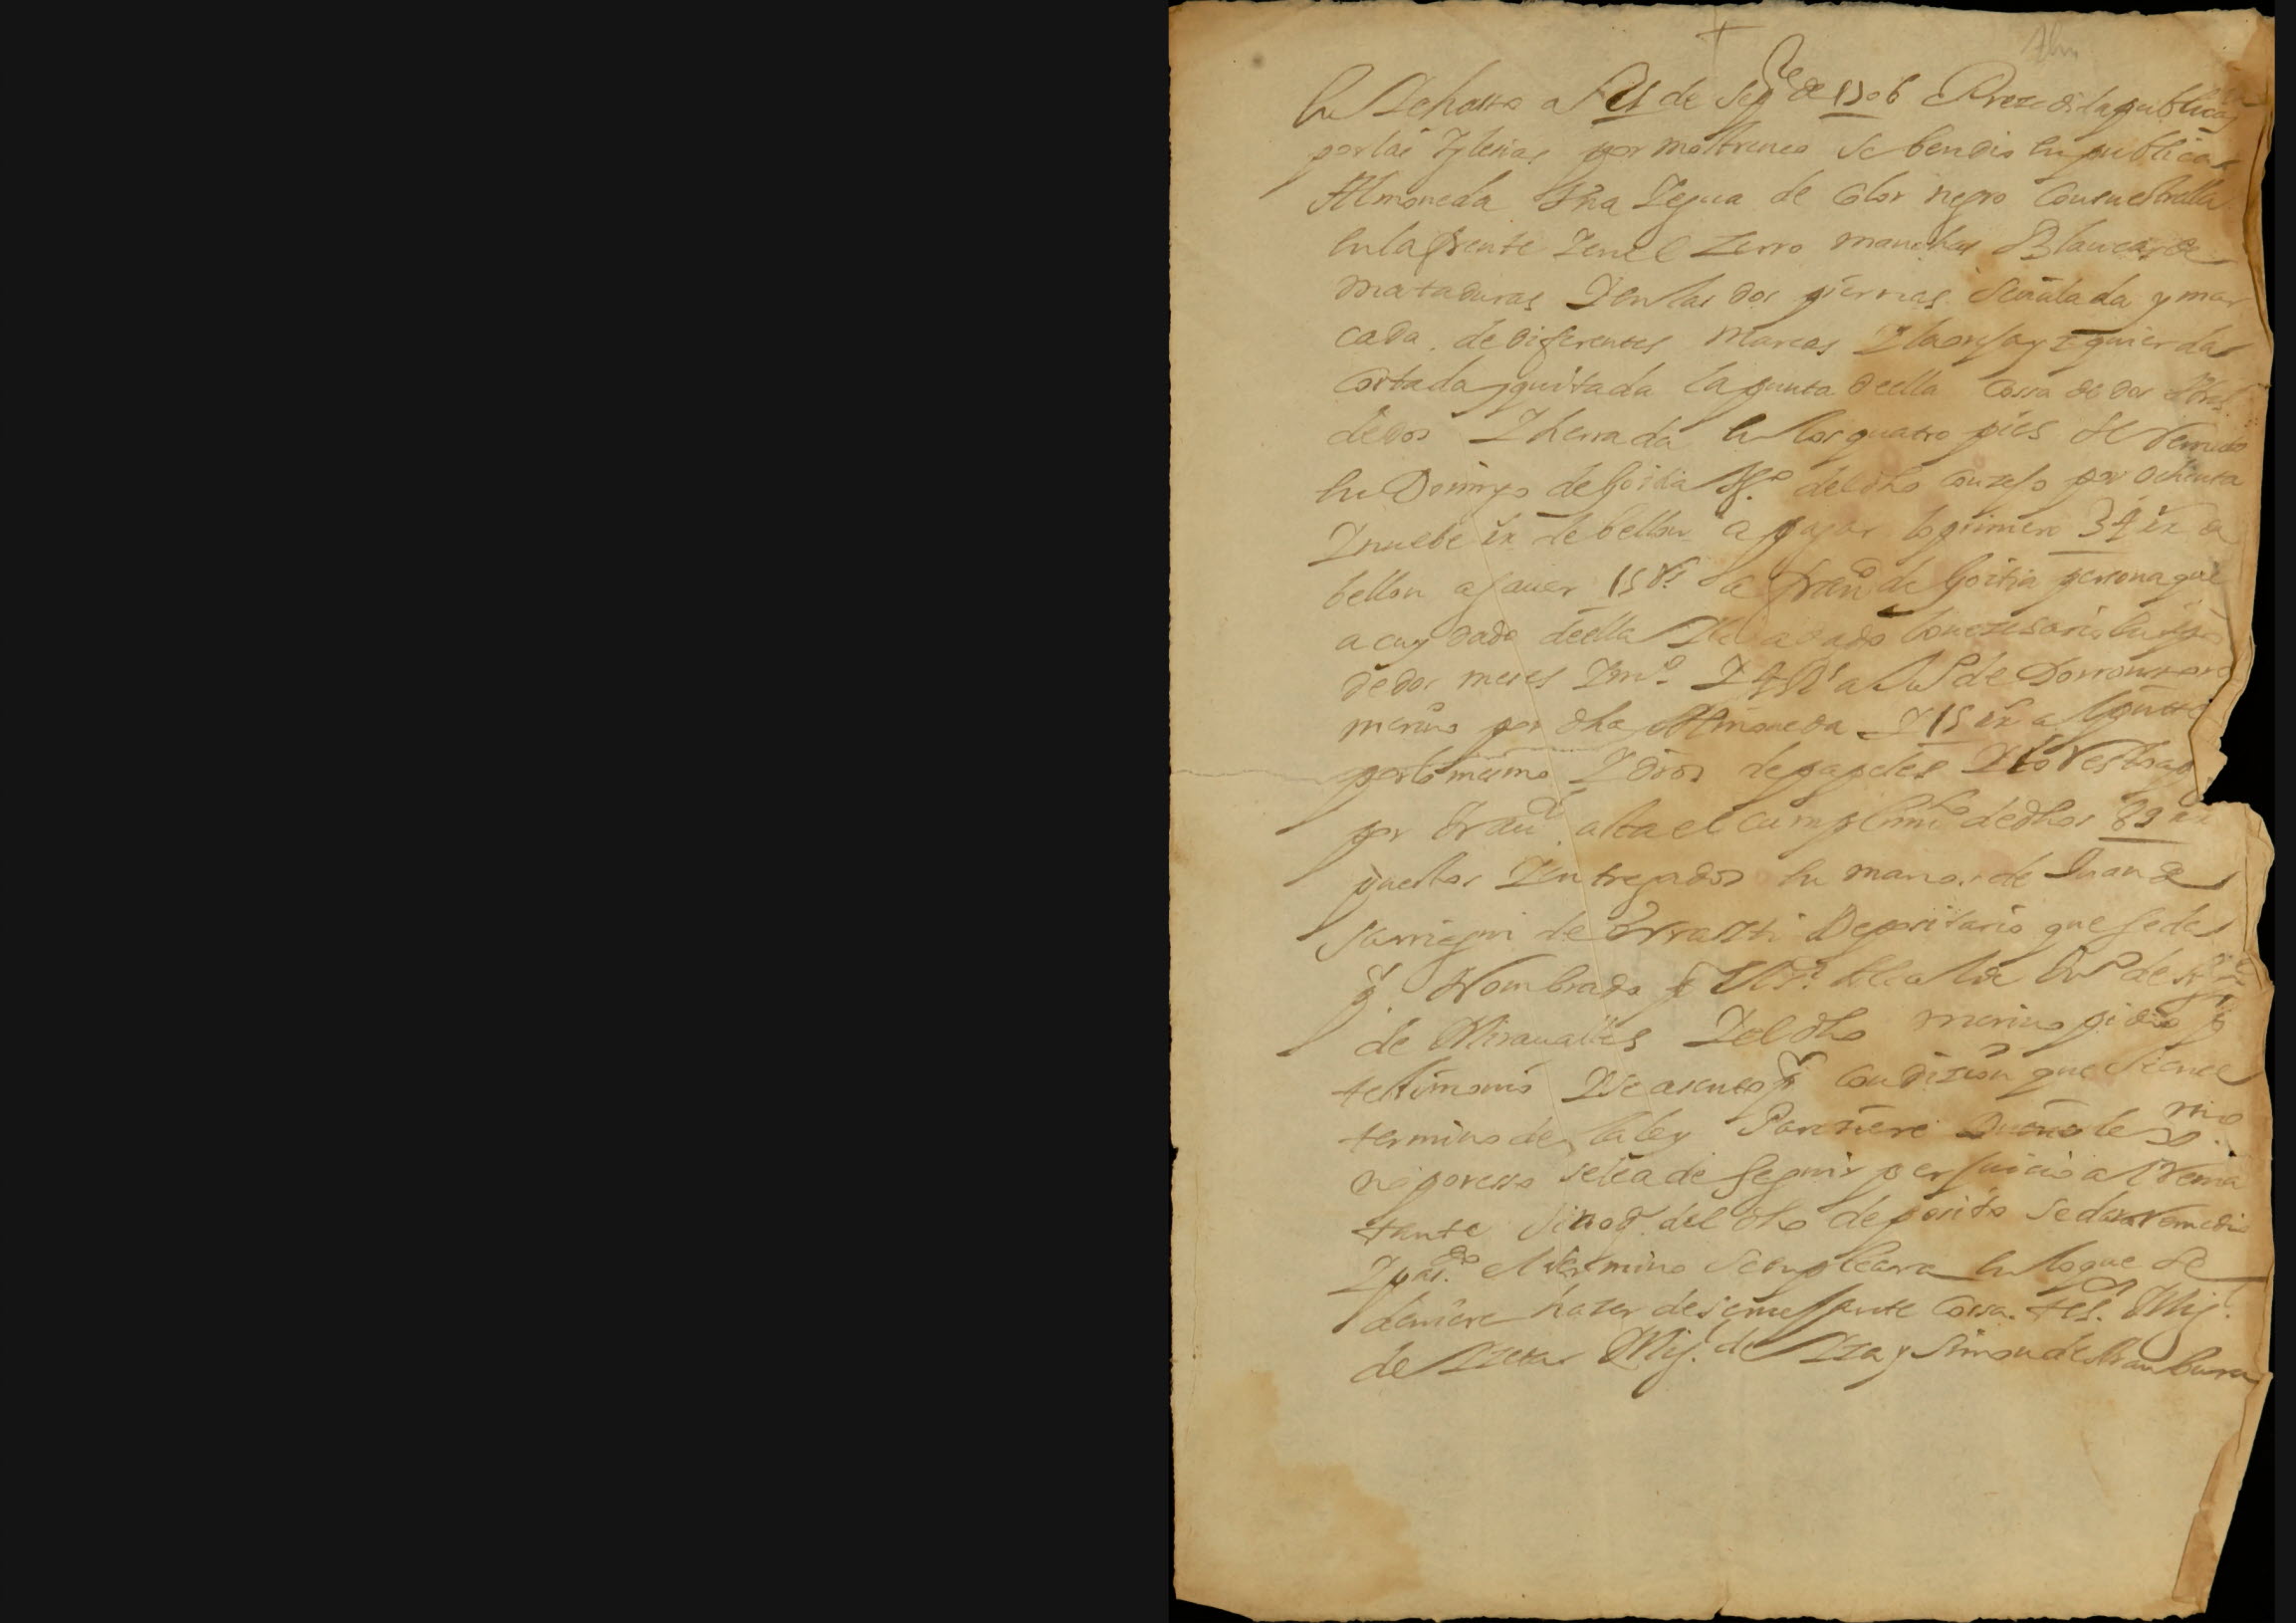 En Lehasso a 21 de Sepe de 1706 Prezedida publicas
por las Iglesias por mostrenco se bendio en publica
Almoneda Una Yegua de Color negro Con su estrella
en la frente Y en el zerro manchas Blancas de
mataduras Y en las dos piernas señalada y mar
cada de diferentes marcas Y la oreja yzquierda
Cortada y quitada la punta de ella Cossa de dos o tres
dedos Y herrada en los quatro pies Se Remato
en Domingo de Goitia Vo del dho Conzejo por ochenta
Y nuebe rx de bellon a pagar lo primero 34 rx de
bellon a sauer 15 Rs a Franco de Goitia persona que
a cuydado de ella Y le a dado lo nezesario
de dos meses Y mo Y 4 Rs a de Dorronsoro
merino por dha Almoneda Y 15 rx a
por lo mismo Y dros de papeles Y lo Restante
por Franco asta el Cumplimto de dhos 89 rx
puestos Y entregados en manos de Juan de
Sarriegui de Errazti Depositario que se da
p. Nombrado pr el Sr Alcalde de
de Miraualles Y el dho merino pidio p
testimonio Y se asento pr Condizion que si en el
termino de la ley Pareziere Dueño lexmo
no por esso se le a de seguir perjuicio al Rema
tante sino q. del dho deposito se dara Remedio
Y pasdo el termino se empleara en lo que se
deuiere hazer de semejante Cossa. tes. Migl
de Migl de Yza y Simon de Aramburu